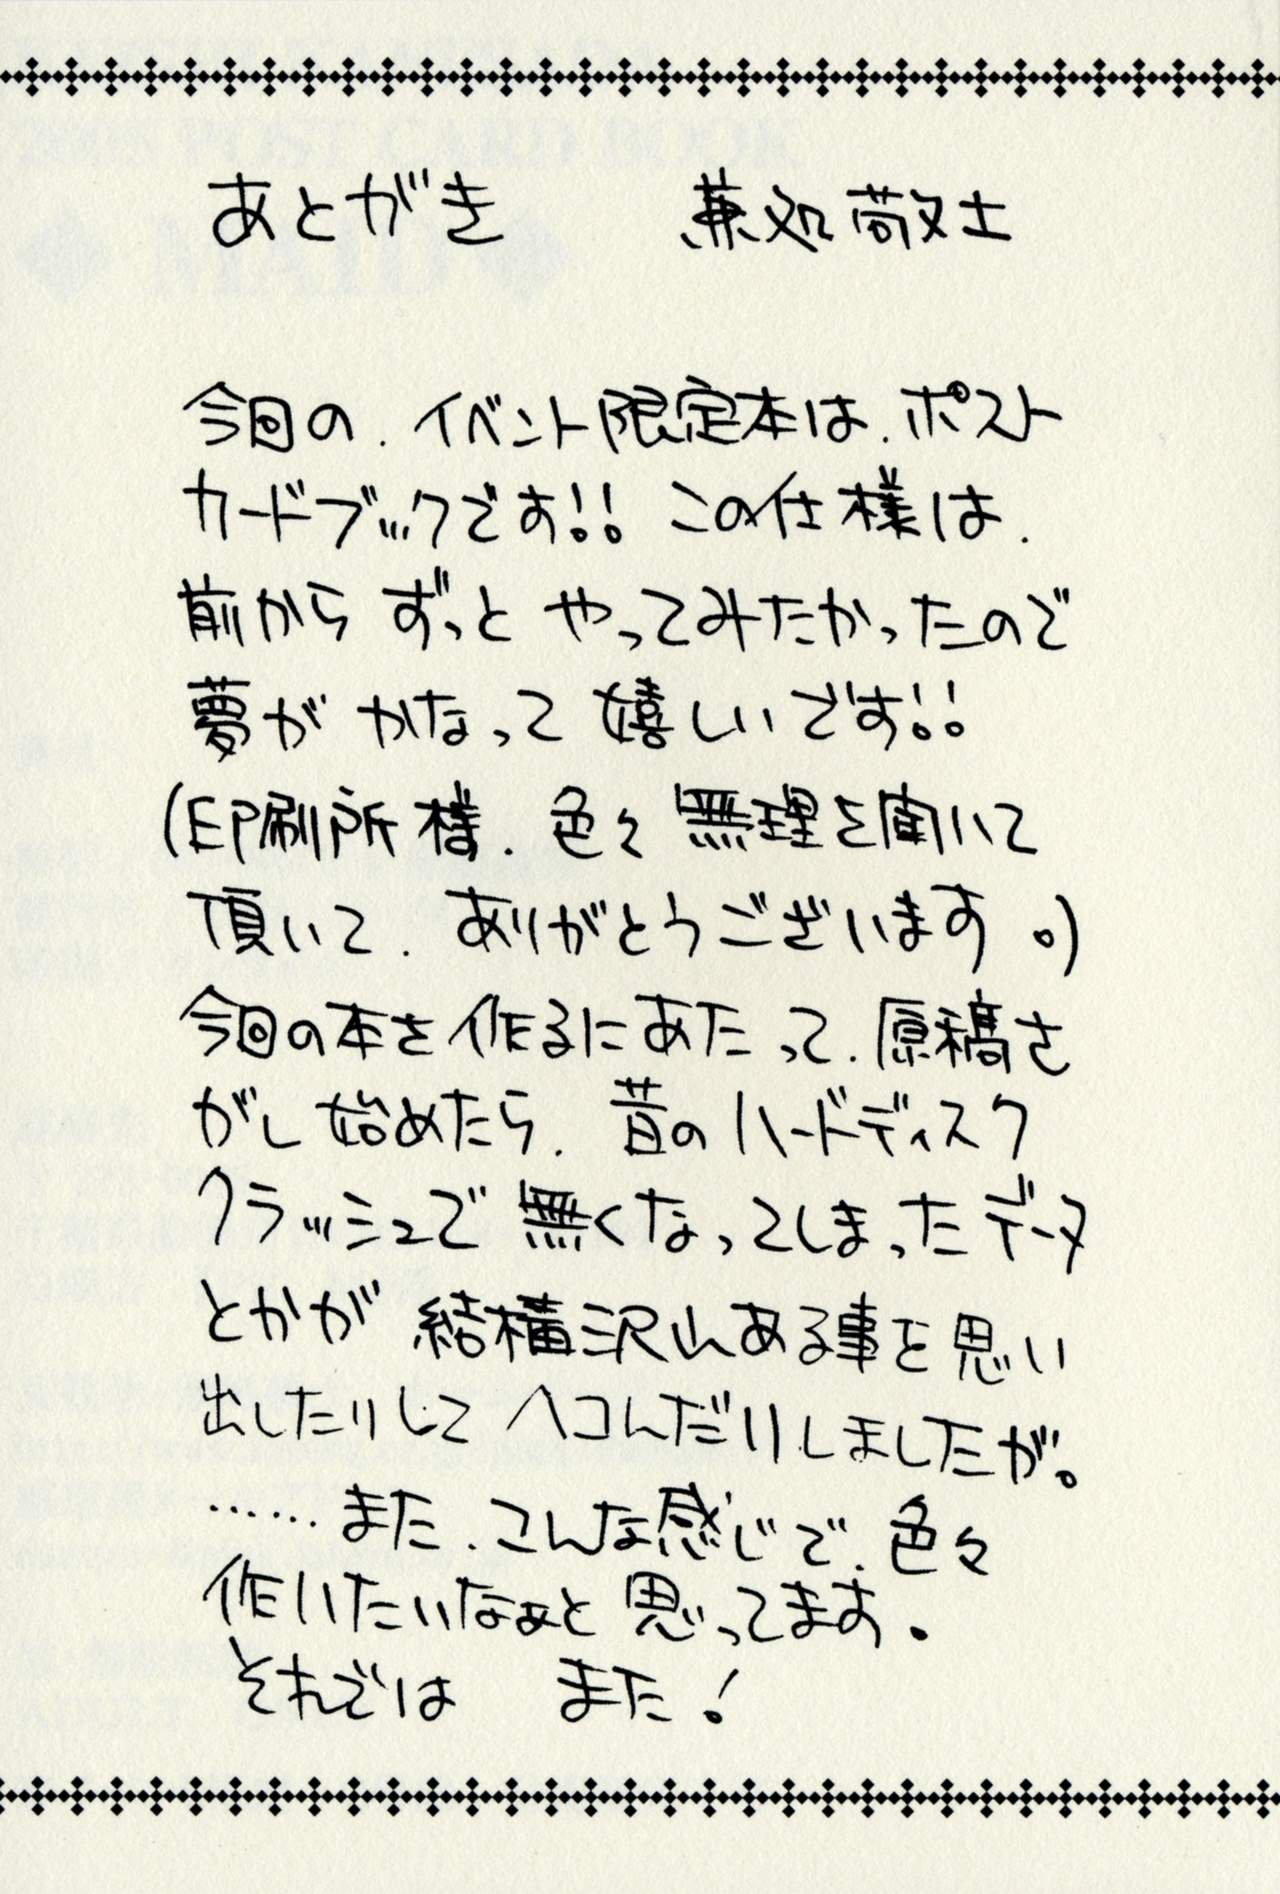 あとがき　兼処敬士
今回の、イベント限定本は、ポスト
カードブックです!! この仕様は、
前から ずっと やってみたかったので
夢が かなって 嬉しいです!!
(印刷所様、色々無理を聞いて
頂いて、ありがとうございます。)
今回の本を作るにあたって、原稿さ
がし始めたら、昔のハードディスク
クラッシュで無くなってしまったデータ
とかが結構沢山ある事を思い
出したりして ヘコんだりしましたが。
……また、こんな感じで、色々
作りたいなぁと思ってます。
それでは　また!